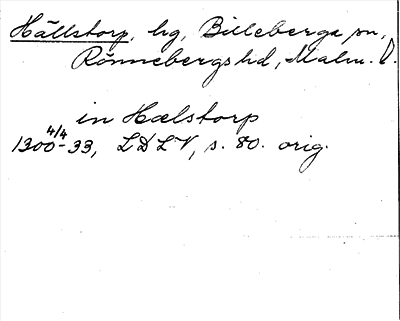 Hällstorp, hg, Billeberga sn,
Rönnebergs hd, Malm. l.
in Hælstorp
4/4
1300-33, LDLV, s. 80. orig.